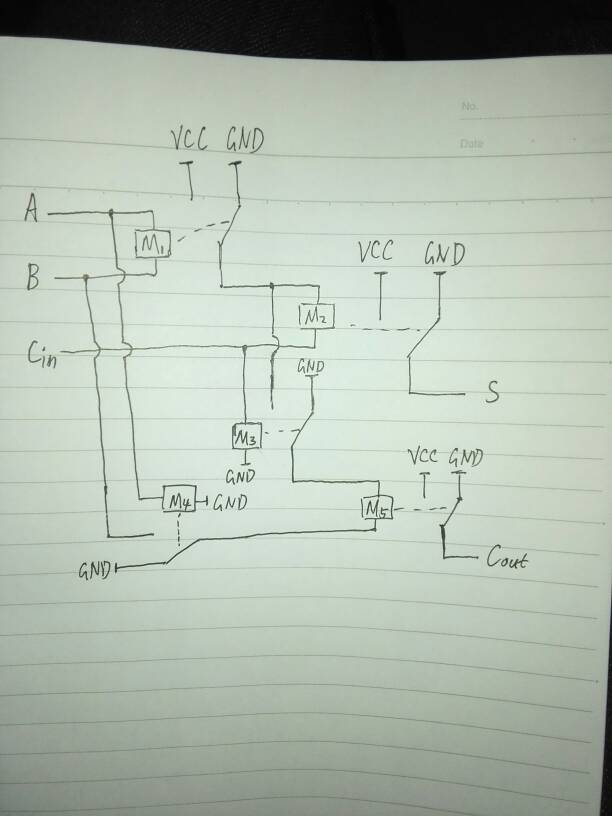 No.
Date
VCC GND
A
M1
B
VCC GND
M2
Cin
GND
S
M3
VCC GND
GND
M4 GND
M5
Cout
GND